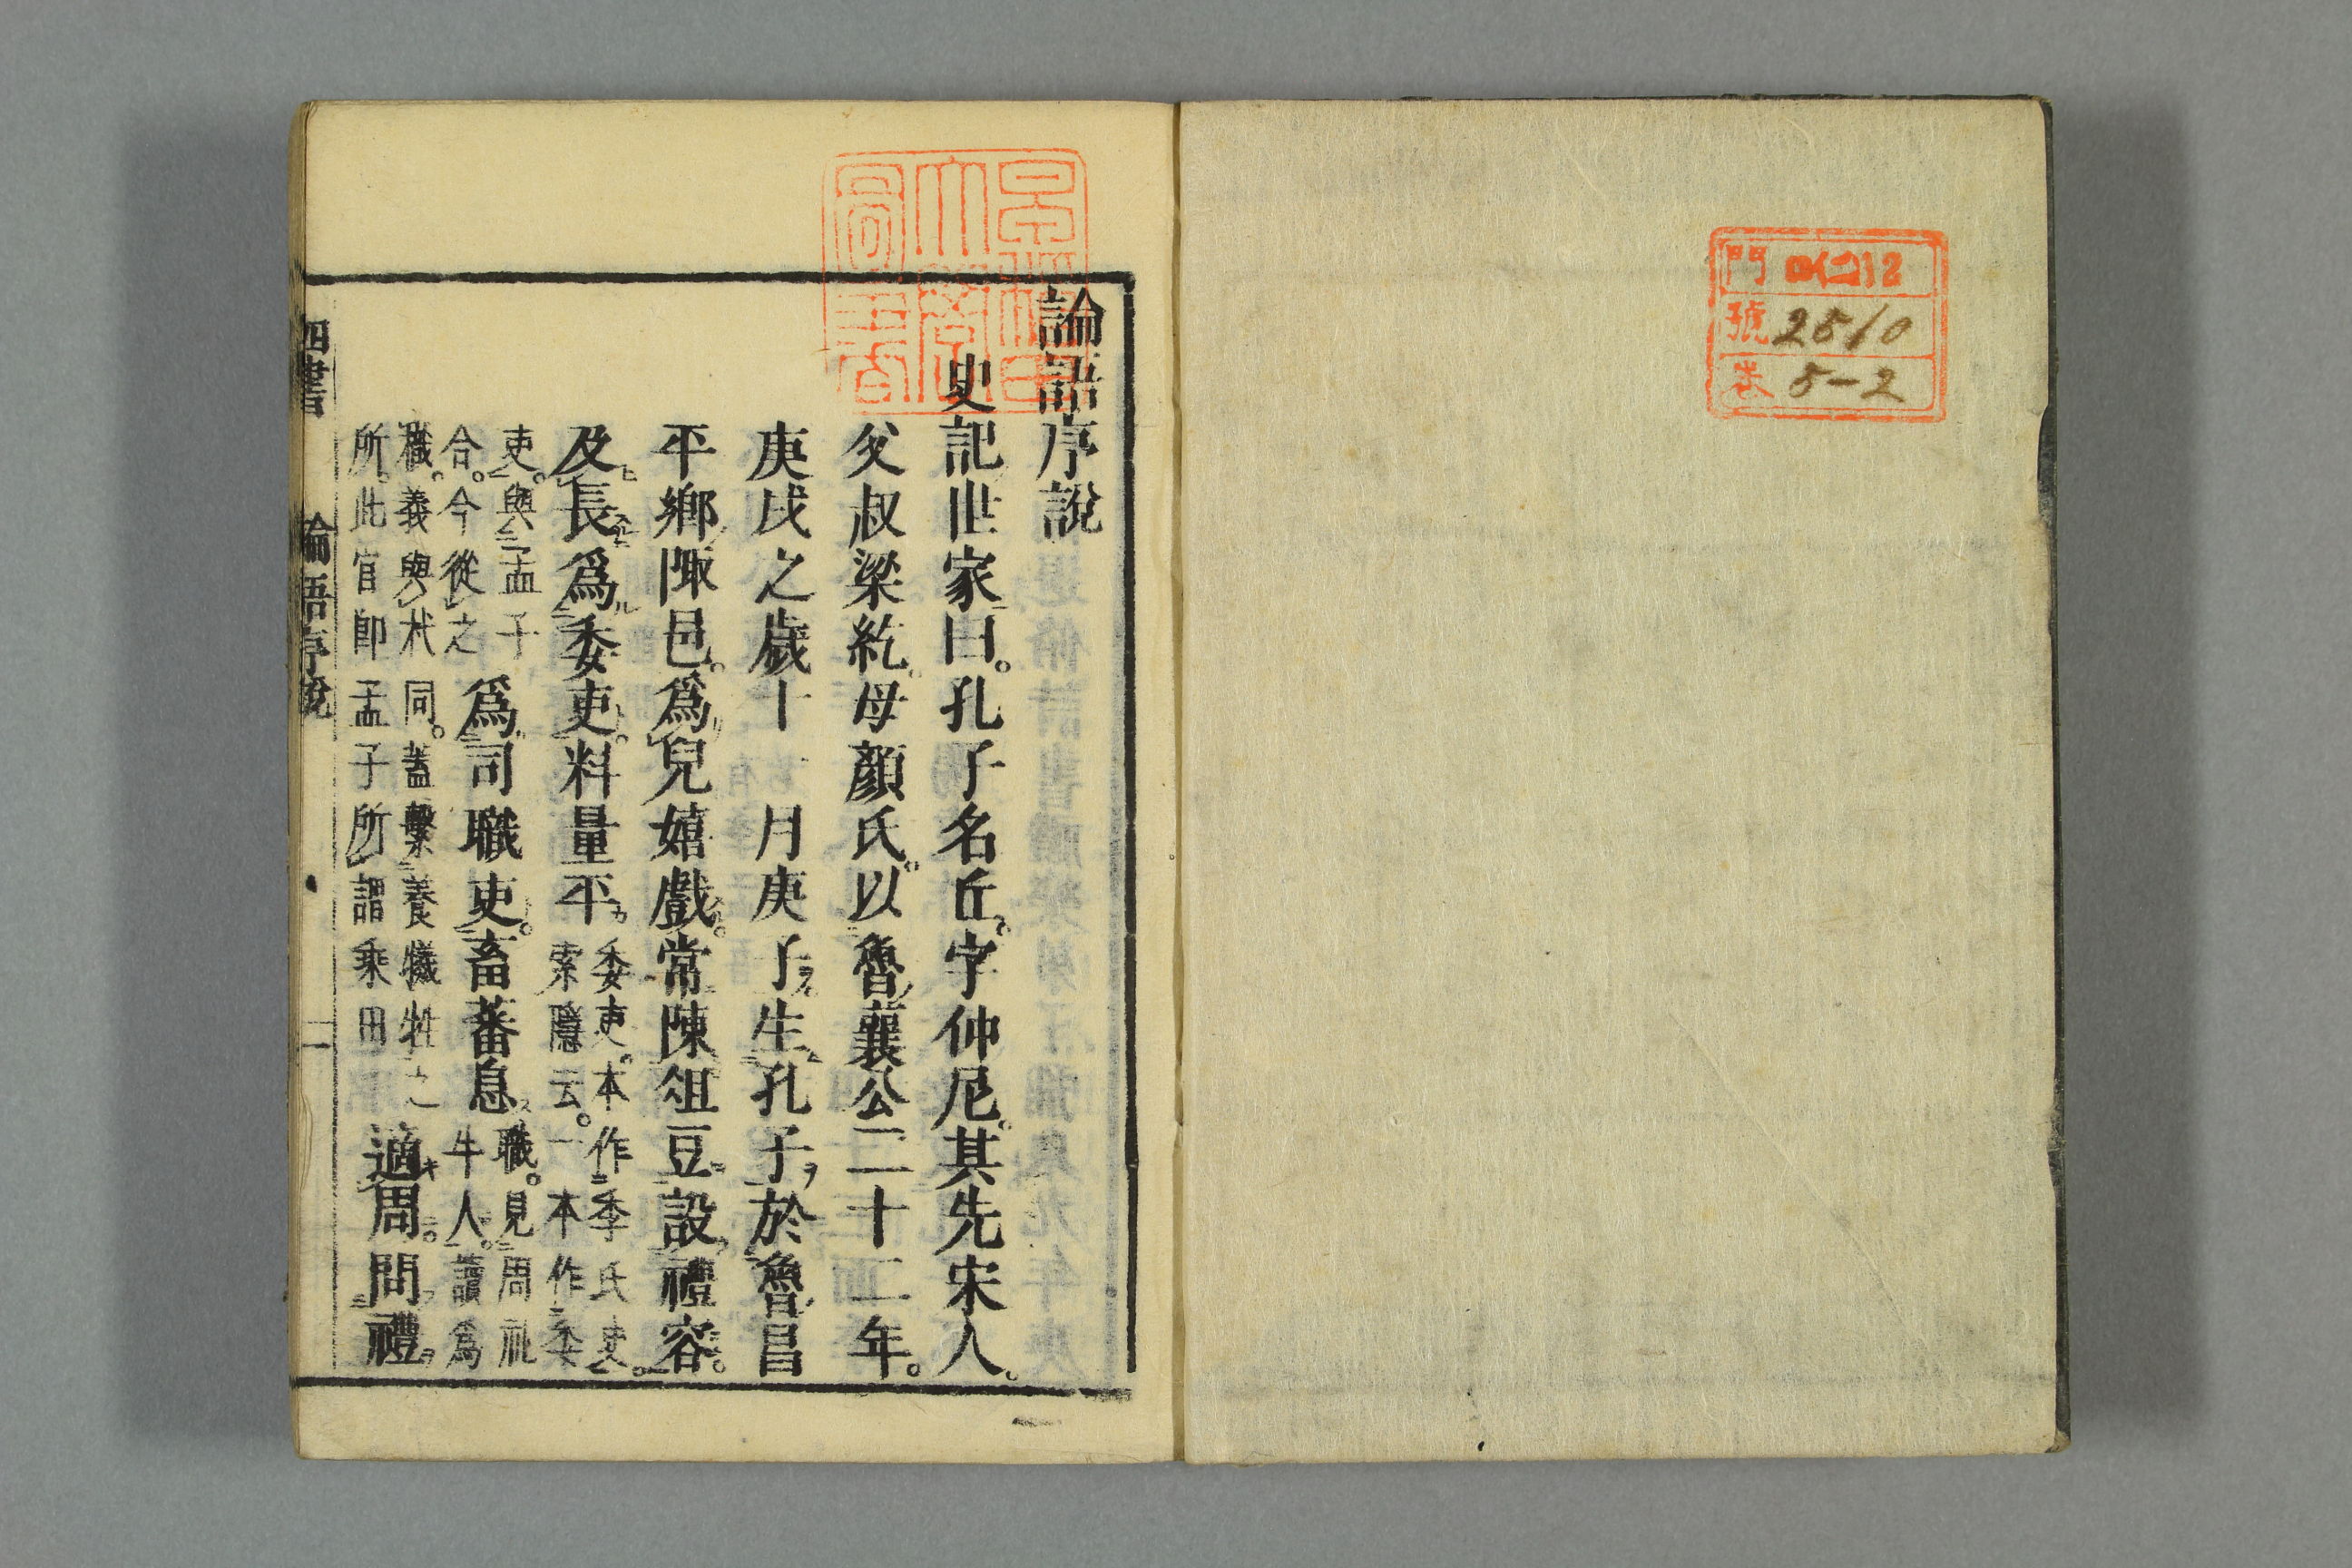 門 ロ(二)12
號 2510
巻 5-2
論語序說
史記世家曰。孔子名丘。字仲尼。其先宋人。
父叔梁紇。母顏氏。以魯襄公二十二年。
庚戌之歲十一月庚子生孔子於魯昌
平鄉陬邑。爲兒嬉戲。常陳俎豆設禮容。
及長爲委吏。料量平。
委吏。本作季氏吏。
索隱云。一本作委
吏。與孟子
合。今從之
爲司職吏。畜蕃息。
職。見周禮
牛人。讀爲
樴。義與杙同。蓋繫養犧牲之
所。此官卽孟子所謂乘田
適周。問禮
四書 論語序說 二